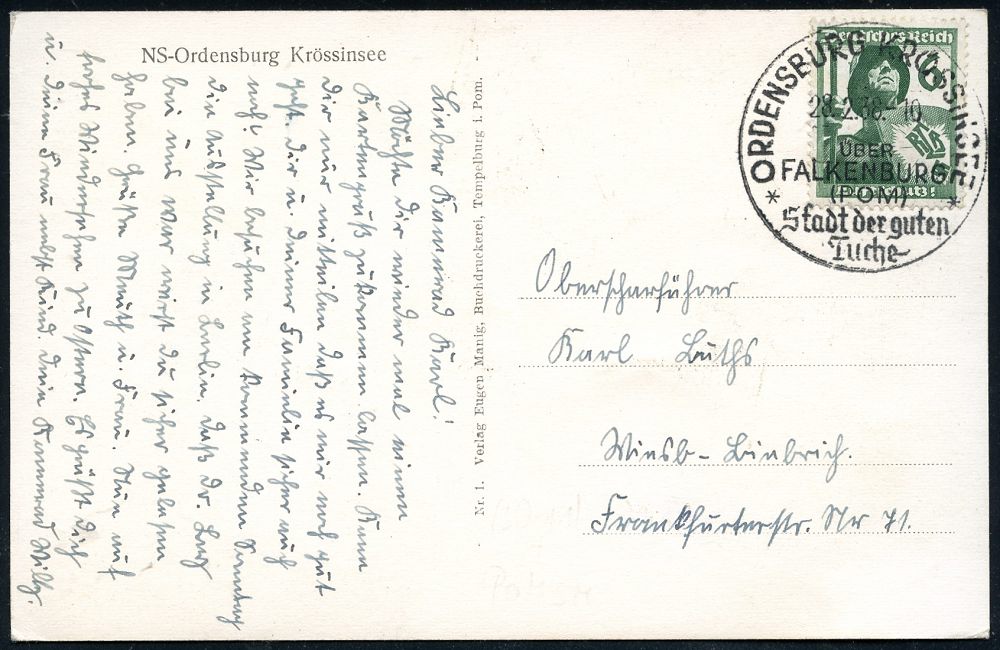 NS-Ordensburg Krössinsee
Lieber Kamerad Karl!
Möchte dir wieder mal einen
Kartengruß zukommen lassen. Kann
dir nur mitteilen daß es mir noch gut
geht. dir u. deiner Familie sicher auch
noch! Wir besuchen am kommenden Sonntag
die Ausstellung in Berlin, daß Dr. Ley
bei uns war wirst du sicher gelesen
haben. Grüße Muth u. Frau. Nun auf
frohes Wiedersehen zu Ostern. Es grüßt dich
u. deine Frau nebst Kind. dein Kamerad Willy.
Nr. 1. Verlag Eugen Manig, Buchdruckerei, Tempelburg i. Pom.
Deutsches Reich
6
RLB
ORDENSBURG KRÖSSINSEE
28.2.38.-10
ÜBER
FALKENBURG
(POM)
* *
Stadt der guten
Tuche
Oberscharführer
Karl Luths
Wiesb-Biebrich.
Frankfurterstr. Nr 71.